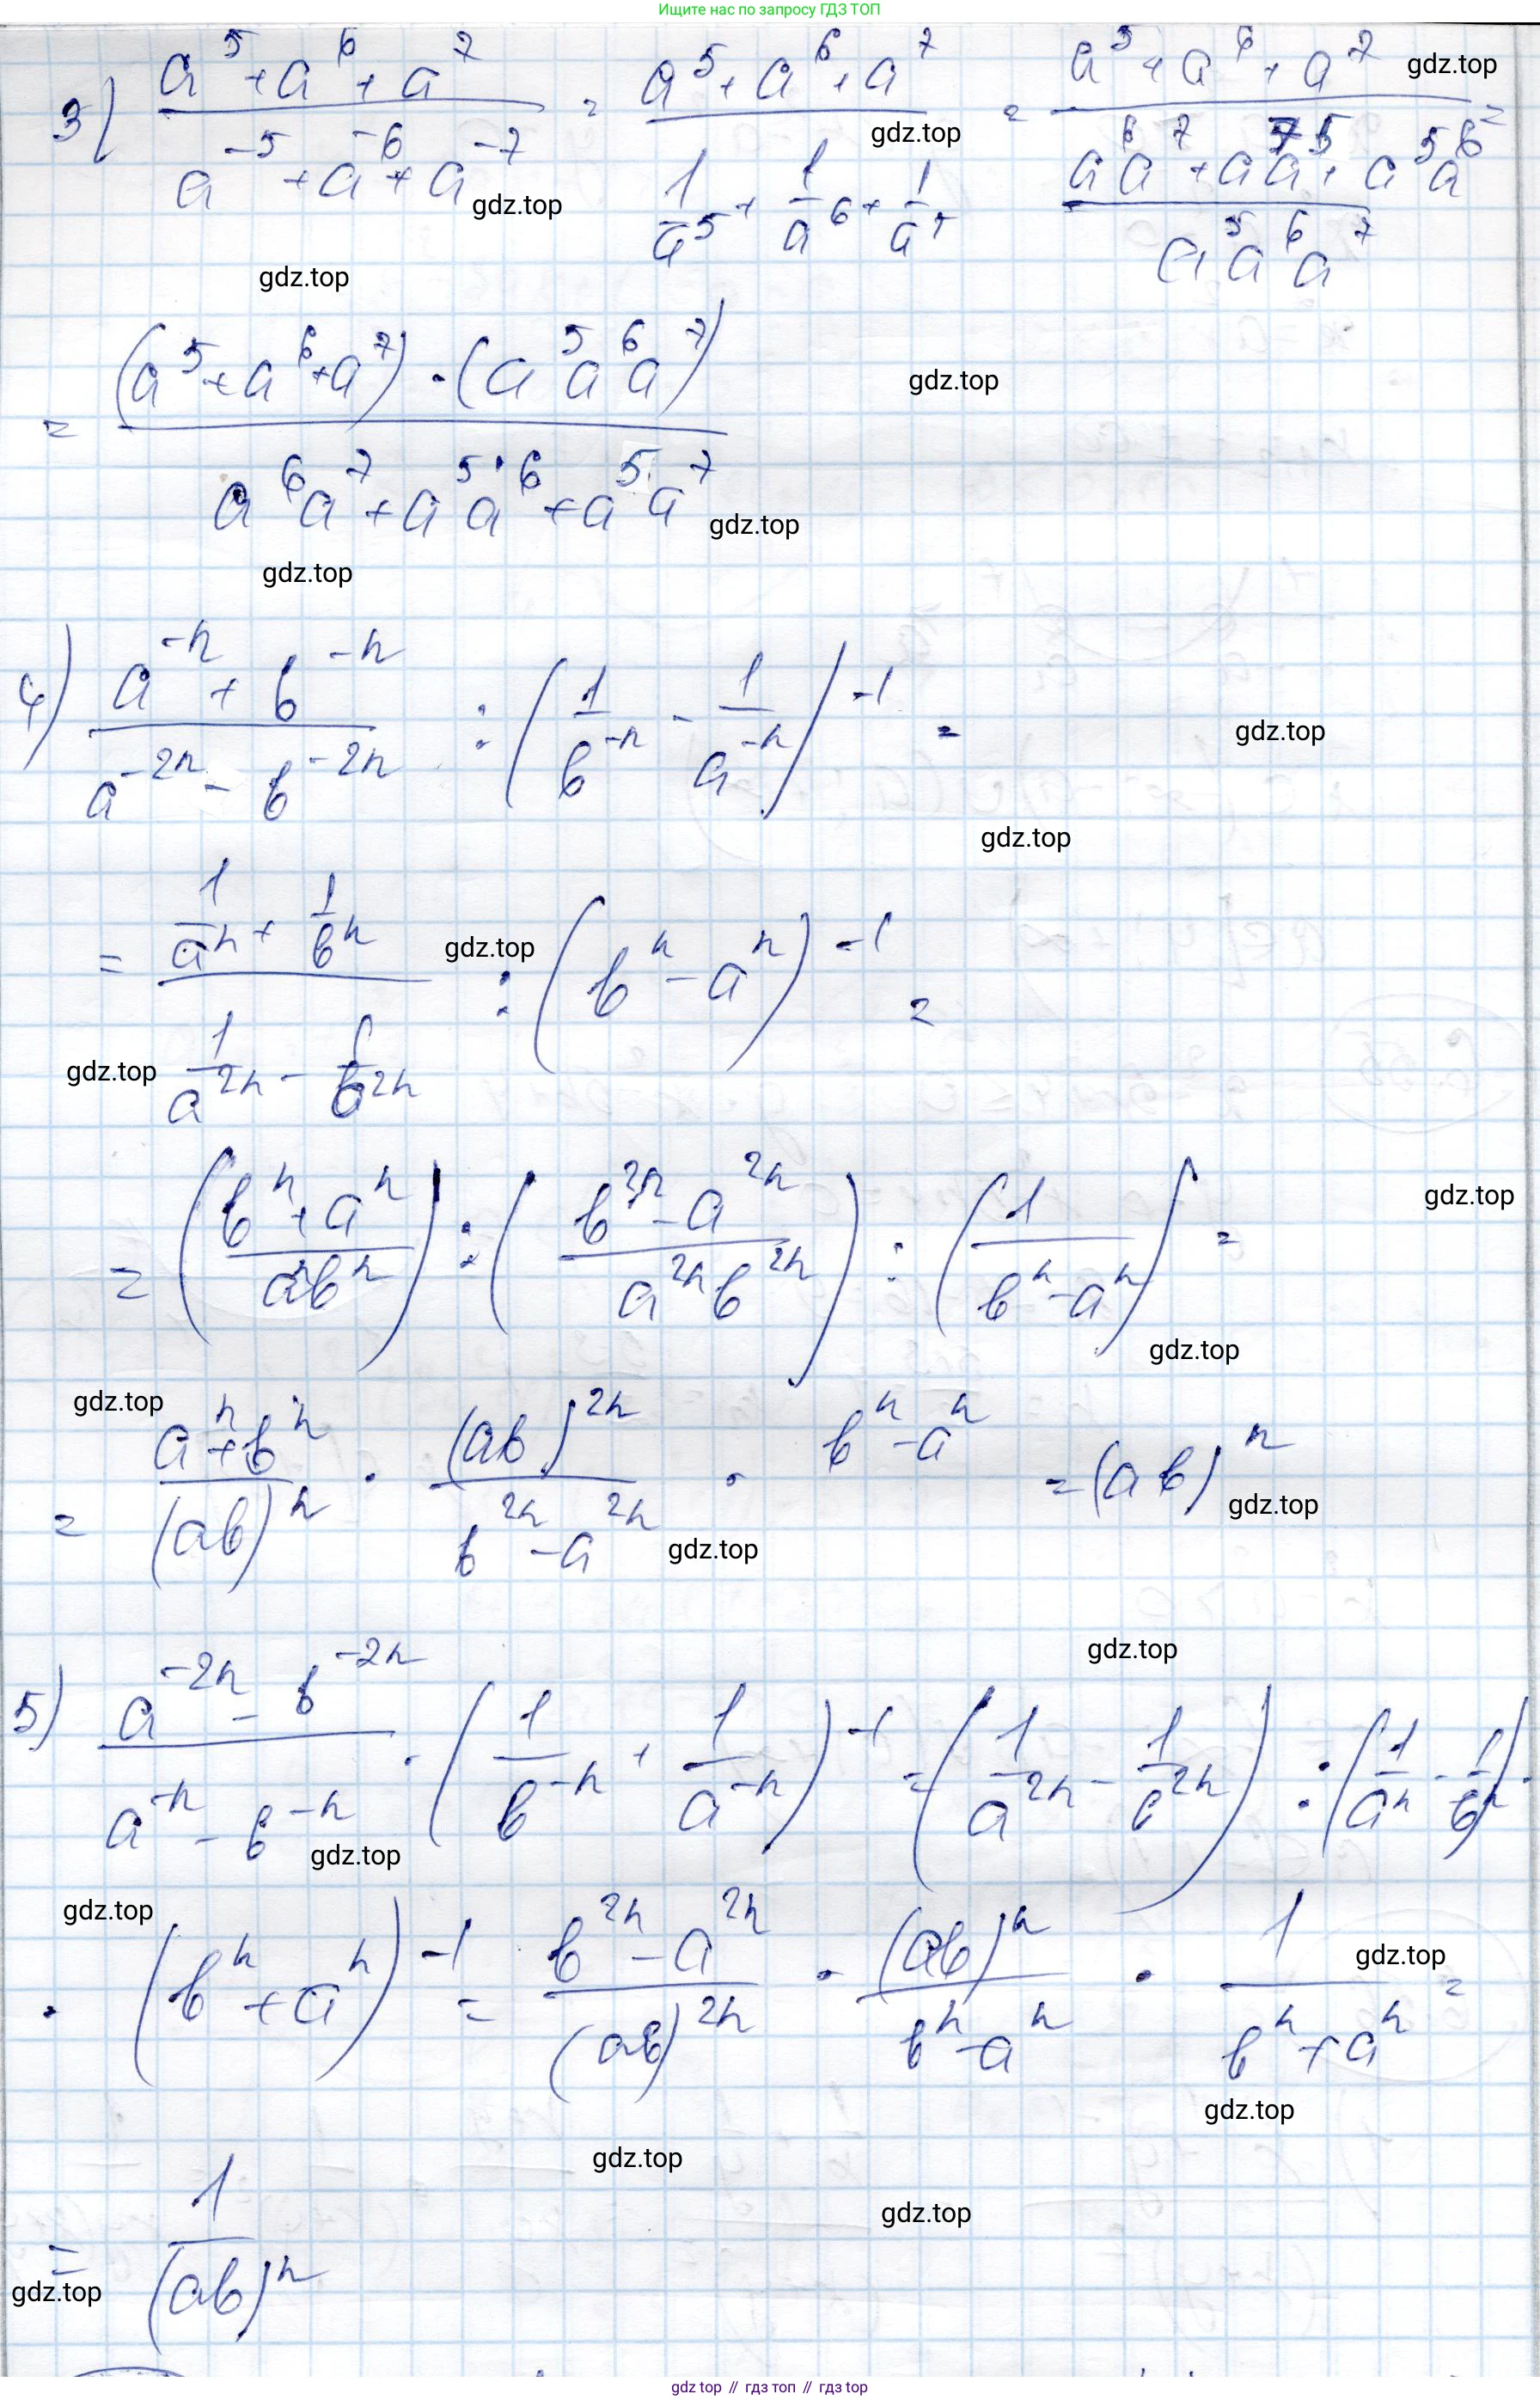 Ищите нас по запросу ГДЗ ТОП
3) (a^5 + a^6 + a^7)/(a^-5 + a^-6 + a^-7) = (a^5 + a^6 + a^7)/(1/a^5 + 1/a^6 + 1/a^7) = (a^5 + a^6 + a^7)/((a^6 a^7 + a a^7 5 + a^5 a^6)/(a^5 a^6 a^7)) =
gdz.top
gdz.top
gdz.top
gdz.top
= ((a^5 + a^6 + a^7) · (a^5 a^6 a^7))/(a^6 a^7 + a^5 a^6 + a^5 a^7)
gdz.top
gdz.top
gdz.top
4) (a^-n + b^-n)/(a^-2n - b^-2n) : (1/b^-n - 1/a^-n)^-1 =
gdz.top
gdz.top
= (1/a^n + 1/b^n)/(1/a^2n - 1/b^2n) : (b^n - a^n)^-1 =
gdz.top
gdz.top
= ((b^n + a^n)/(a^n b^n)) : ((b^2n - a^2n)/(a^2n b^2n)) : (1/(b^n - a^n)) =
gdz.top
gdz.top
gdz.top
= (a^n + b^n)/(ab)^n · (ab)^2n/(b^2n - a^2n) · b^n - a^n = (ab)^n
gdz.top
gdz.top
gdz.top
5) (a^-2n - b^-2n)/(a^-n - b^-n) · (1/b^-n + 1/a^-n)^-1 = (1/a^2n - 1/b^2n) : (1/a^n - 1/b^n) ·
gdz.top
gdz.top
· (b^n + a^n)^-1 = (b^2n - a^2n)/(ab)^2n · (ab)^n/(b^n - a^n) · 1/(b^n + a^n) =
gdz.top
gdz.top
gdz.top
gdz.top
= 1/(ab)^n
gdz.top
gdz top // гдз топ // гдз top